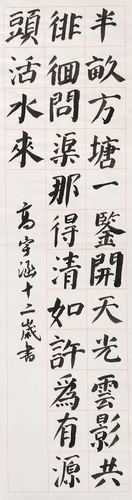 半畝方塘一鑒開天光雲影共
徘徊問渠那得清如許為有源
頭活水來
高宇涵十二歲書